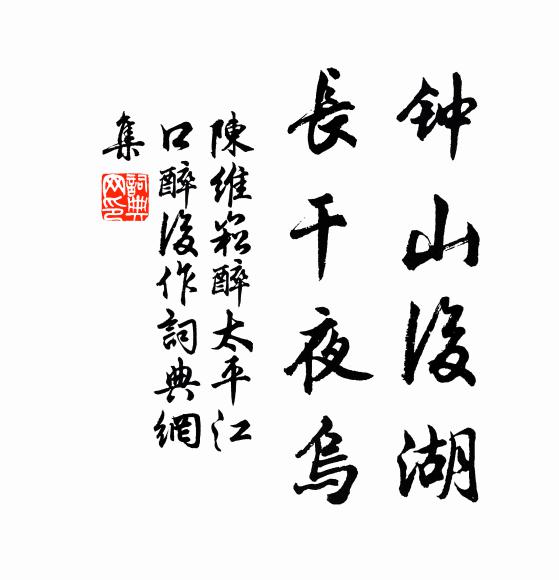 钟山後湖
長干夜烏
陳維崧醉太平江
口醉後作詞典網
集
詞典網印